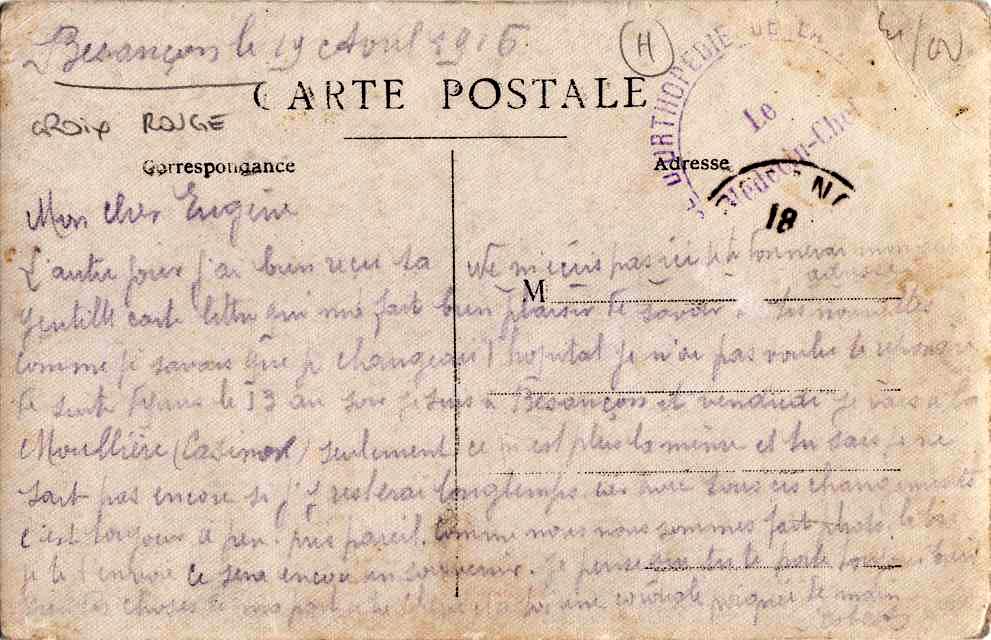 Besançon le 19 Août 1916
H
CARTE POSTALE
CROIX ROUGE
D'ORTHOPEDIE DE
Le
Médecin-Chef
Correspondance
Adresse
18
Mon cher Eugène
L'autre jour j'ai bien reçu ta
Ne m'écris pas ici je te donnerai mon
adresse
M
gentille carte lettre qui m'a fait bien plaisir de savoir de tes nouvelles
comme je savais que je changeais d'hopital je n'ai pas voulu te
de suite le 13 au soir je suis à Besançon et vendredi je vais à la
Mouillière (Casino) seulement ce n'est plus la même et tu sais je ne
sait pas encore si j'y resterai longtemps avec tous ces changements
c'est toujours à peu près pareil. Comme nous nous sommes fait
je te l'envoie ce sera encore un souvenir. Je pense que tu te porte toujours bien
choses de ma part une cordiale poignée de main